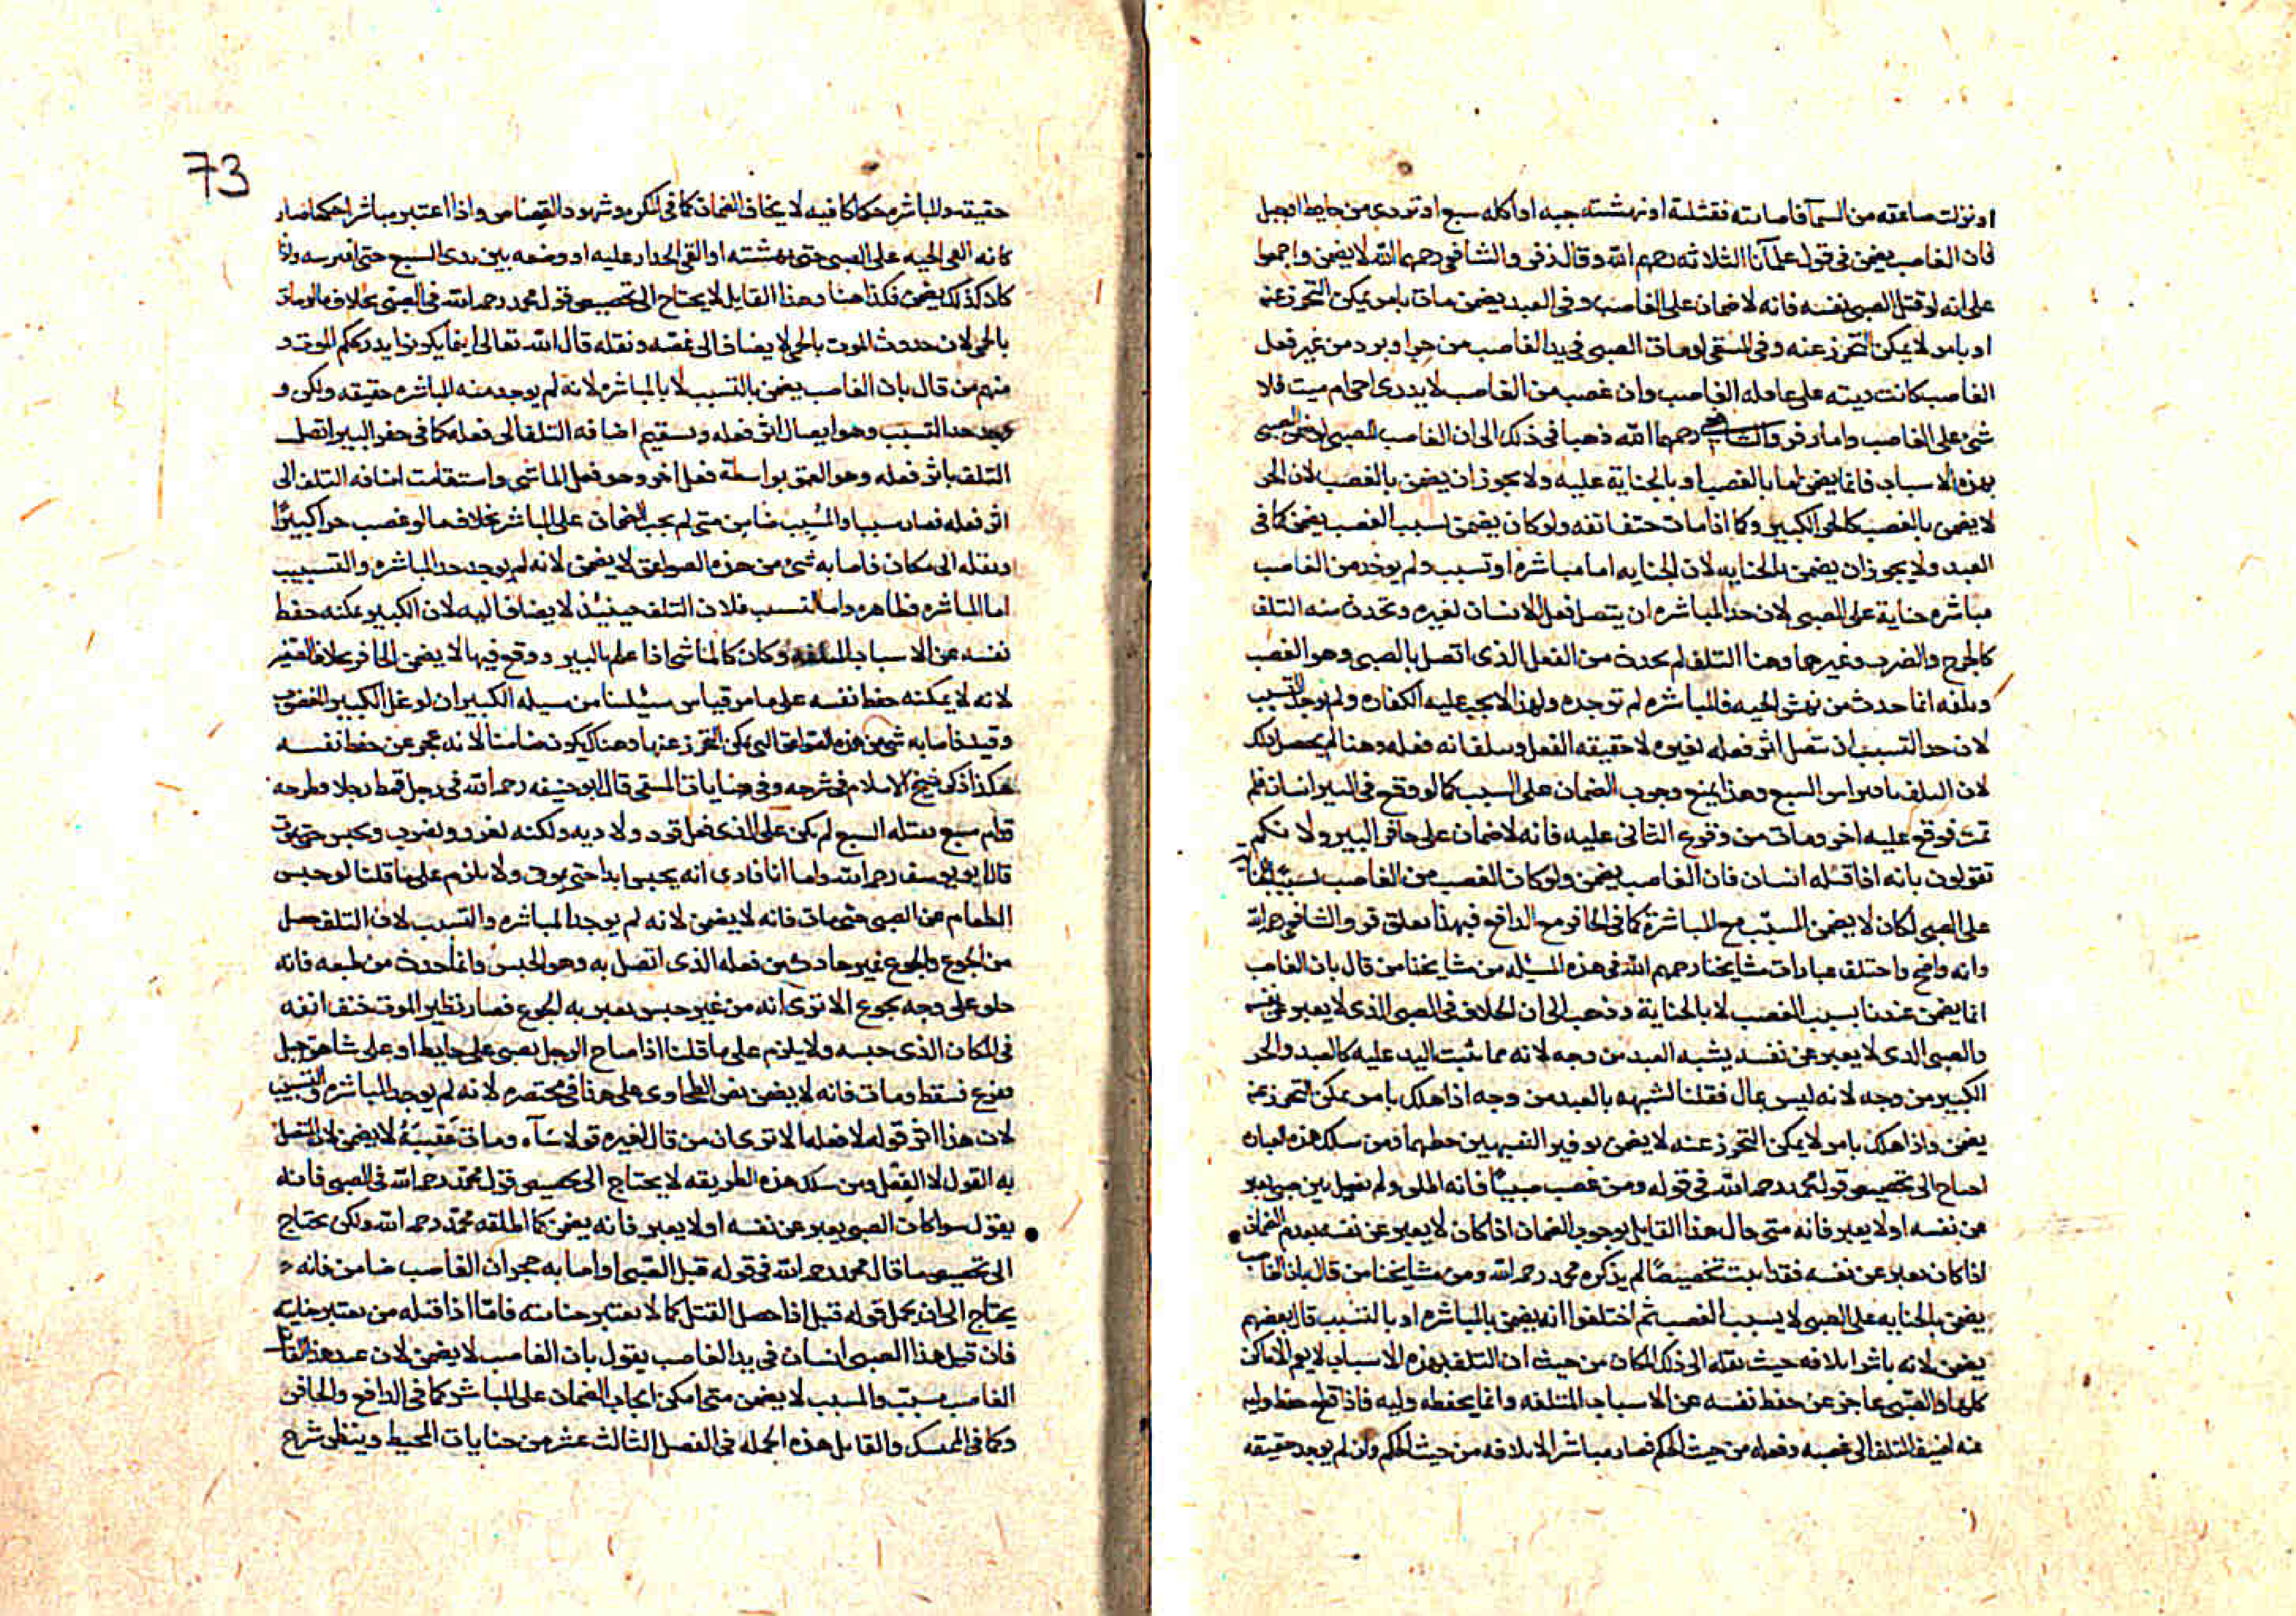 او نزلت صاعقه من السمآ فاصابته فقتلته او نهشته حيه او اكله سبع او تردى من حايط او جبل
فان الغاصب يضمن فى قول علمآنا الثلاثه رحمهم الله وقال زفر والشافعى رحمهما الله لا يضمن واجمعوا
على انه لو قتل الصبى نفسه فانه لا ضمان على الغاصب وفى العبد يضمن مات بامر يمكن التحرز عنه
او بامر لا يمكن التحرز عنه وفى المنتقى لو مات الصبى فى يد الغاصب من حر او برد من غير فعل
الغاصب كانت ديته على عاقله الغاصب وان غصب من الغاصب لا يدرى احى ام ميت فلا
شئ على الغاصب واما زفر والشافعى رحمهما الله ذهبا فى ذلك الى ان الغاصب للصبى لو ضمن الصبى
بهذه الاسباب فانما يضمن اما بالغصب او بالجناية عليه ولا يجوز ان يضمن بالغصب لان الحر
لا يضمن بالغصب كالحر الكبير وكما اذا مات حتف انفه ولو كان يضمن بسبب الغصب يضمن كما فى
العبد ولا يجوز ان يضمن بالجنايه لان الجنايه اما مباشره او تسبب ولم يوخد من الغاصب
مباشره جناية على الصبى لان حد المباشره ان يتصل فعل الانسان لغيره وتحدث منه التلف
كالجرح والضرب وغيرهما وهنا التلف لم يحدث من الفعل الذى اتصل بالصبى وهو الغصب
وتلفه انما حدث من نهش الحيه فالمباشره لم توجده ولهذا لا يجب عليه الكفاره ولم يوجد التسبب
لان حد التسبب ان يتصل اثر فعله لغيره لا حقيقه الفعل وهنا لم يحصل ذلك
لان التلف بافتراس السبع وهذا يمنع وجوب الضمان على السبب كما لو وقع فى البير انسان فلم
تمت فوقع عليه اخر ومات من وقوع الثانى عليه فانه لا ضمان على حافر البير ولا نكم
تقولون بانه اذا قتله انسان فان الغاصب يضمن ولو كان الغصب من الغاصب تسبيبا للجنايه
على الصبى لكان لا يضمن المسبب مع المباشرة كما فى الحافر مع الدافع فبهذا تعلق زفر والشافعى رحمهما الله
وانه واضح واختلف عبارات مشايخنا رحمهم الله فى هذه المسئله من مشايخنا من قال بان الغاصب
انما يضمن عندنا بسبب الغصب لا بالجناية وذهب الى ان الخلاف فى الصبى الذى لا يعبر عن نفسه
والصبى الذى لا يعبر عن نفسه يشبه العبد من وجه لانه مما يثبت اليد عليه كالعبد والحر
الكبير من وجه لانه ليس بمال فقلنا لشبهه بالعبد من وجه اذا هلك بامر يمكن التحرز عنه
يضمن واذا هلك بامر لا يمكن التحرز عنه لا يضمن توفير الشبهين حظهما فمن سلك هذه العباره
احتاج الى تخصيص قول محمد رحمه الله فى قوله ومن غصب صبيا فانه اطلق ولم يفصل بين صبى يعبر
عن نفسه او لا يعبر فانه متى حال هذا القايل بوجوب الضمان اذا كان لا يعبر عن نفسه بعدم الضمان
اذا كان يعبر عن نفسه فقد اثبت تخصيصا لم يذكره محمد رحمه الله ومن مشايخنا من قال بان الغاصب
يضمن بالجنايه على الصبى لا بسبب الغصب ثم اختلفوا انه يضمن بالمباشره او بالتسبب قال بعضهم
يضمن لانه باشر اتلافه حيث نقله الى ذلك المكان من حيث ان التلف بهذه الاسباب لا يعم الاماكن
كلها والصبى عاجز عن حفظ نفسه عن الاسباب المتلفه وانما يحفظه وليه فاذا قطع حفظ وليه
عنه اضيف التلف الى غصبه وفعله من حيث الحكم فصار مباشرا لاتلافه من حيث الحكم وان لم يوجد حقيقه
73
حقيقه والمباشره حكما كافيه لايجاب الضمان كما فى المكره وشهود القصاص واذا اعتبر مباشرا حكما صار
كانه القى الحيه على الصبى حتى نهشته او القى الجدار عليه او وضعه بين يدى السبع حتى افترسه واذا
كان كذلك يضمن فكذا هنا وهذا القايل لا يحتاج الى تخصيص قول محمد رحمه الله فى الصبى بخلاف ما لو مات
بالحمى لان حدوث الموت بالحمى لا يضاف الى غصبه ونقله قال الله تعالى اينما تكونوا يدرككم الموت و
منهم من قال بان الغاصب يضمن بالتسبب لا بالمباشره لانه لم يوجد منه المباشره حقيقه ولكن و
وجد حد التسبب وهو ايصال اثر فعله ويستقيم اضافه التلف الى فعله كما فى حفر البير اتصل
التلف باثر فعله وهو العمق بواسطة فعل اخر وهو فعل الماشى واستقامت اضافه التلف الى
اثر فعله فصار سببا والمسبب ضامن متى لم يجب الضمان على المباشر بخلاف ما لو غصب حرا كبيرا
ونقله الى مكان فاصابه شئ من هذه الصواعق لا يضمن لانه لم يوجد حد المباشره والتسبيب
اما المباشره فظاهره واما التسبب فلان التلف حينيذ لا يضاف اليه لان الكبير يمكنه حفظ
نفسه عن الاسباب المتلفه وكان كالماشى اذا علم بالبير ووقع فيها لا يضمن الحافر بخلاف الصغير
لانه لا يمكنه حفظ نفسه على ما مر قياس مسئلتنا من مسيله الكبير ان لو غل الكبير الغاصب
وقيد فاصابه شئ من هذه الصواعق التى يمكن التحرز عنها وهناك يكون ضامنا لانه عجز عن حفظ نفسه
هكذا ذكر شيخ الاسلام فى شرحه وفى جنايات المنتقى قال ابو حنيفه رحمه الله فى رجل قمط رجلا وطرحه
قدام سبع فقتله السبع لم يكن على الذى فعل قود ولا ديه ولكنه يعزر ويضرب ويحبس حتى يتوب
قال ابو يوسف رحمه الله واما انا فارى انه يحبس ابدا حتى يموت ولا يلزم على ما قلنا لو حبس
الطعام عن الصبى حتى مات فانه لا يضمن لانه لم يوجد المباشره والتسبب لان التلف حصل
من الجوع والجوع غير حادث من فعله الذى اتصل به وهو الحبس وانما حدث من طبعه فانه
خلق على وجه يجوع الا ترى انه من غير حبس يعتريه الجوع فصار نظير الموت حتف انفه
فى المكان الذى حبسه ولا يلزم على ما قلنا اذا صاح الرجل بصبى على حايط او على شاهق جبل
ففزع فسقط ومات فانه لا يضمن نص الطحاوى على هذا فى مختصره لانه لم يوجد المباشره والتسبب
لان هذا اثر قوله لا فعله الا ترى ان من قال لغيره قولا سآه ومات عقيبه لا يضمن لان المتصل
به القول لا الفعل ومن سلك هذه الطريقه لا يحتاج الى تخصيص قول محمد رحمه الله فى الصبى فانه
يقول سوا كان الصبى يعبر عن نفسه او لا يعبر فانه يضمن كما اطلقه محمد رحمه الله ولكن يحتاج
الى تخصيص ما قال محمد رحمه الله فى قوله قتل الصبى او اصابه حجر ان الغاصب ضامن فانه
يحتاج الى ان يحمل قوله قتل اذا حصل القتل كما لا يعتبر جنايته فاما اذا قتله من يعتبر جنايته
فان قتل هذا الصبى انسان فى يد الغاصب يقول بان الغاصب لا يضمن لان عند هذا القايل
الغاصب مسبب والمسبب لا يضمن متى امكن ايجاب الضمان على المباشر كما فى الدافع والحافر
وكما فى الممسك والقاتل هذه الجمله فى الفصل الثالث عشر من جنايات المحيط وينظر شرح